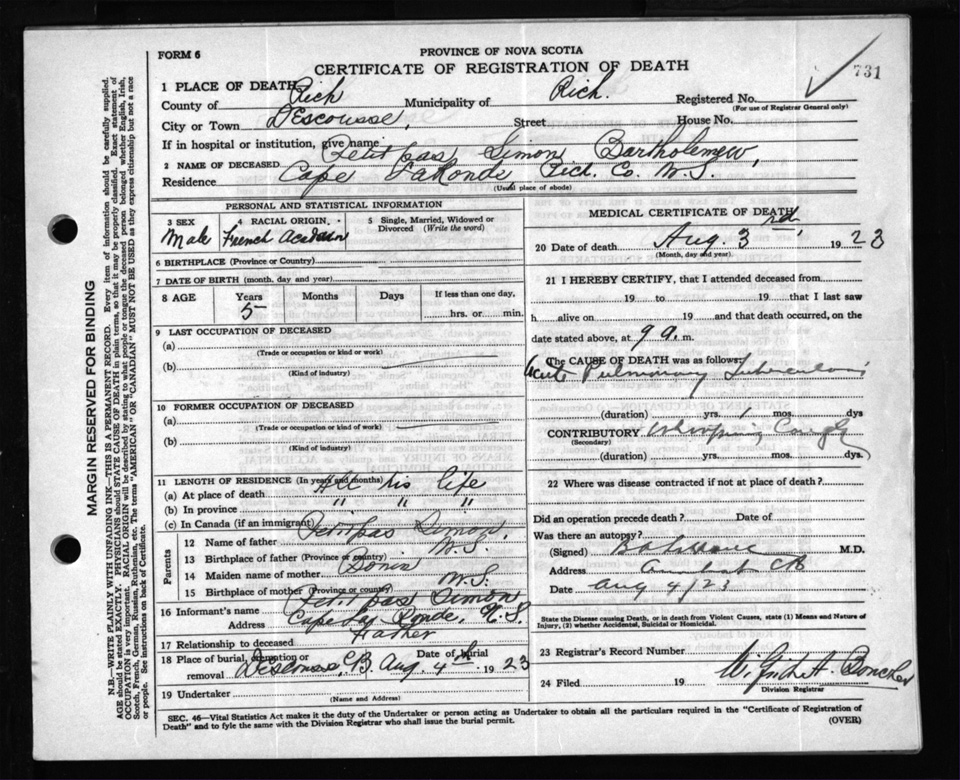 FORM 6
PROVINCE OF NOVA SCOTIA
CERTIFICATE OF REGISTRATION OF DEATH
731
1 PLACE OF DEATH
County of Rich Municipality of Rich. Registered No.
(For use of Registrar General only)
City or Town DEscousse, Street House No.
If in hospital or institution, give name
2 NAME OF DECEASED Petitpas Simon Bartholemew,
Residence Cape LaRonde Rich. Co. N.S.
(Usual place of abode)
PERSONAL AND STATISTICAL INFORMATION
3 SEX 4 RACIAL ORIGIN 5 Single, Married, Widowed or Divorced (Write the word)
Male French Acadain
6 BIRTHPLACE (Province or Country)
7 DATE OF BIRTH (month, day and year)
8 AGE Years Months Days If less than one day,
5 hrs. or min.
9 LAST OCCUPATION OF DECEASED
(a)
(Trade or occupation or kind or work)
(b)
(Kind of industry)
10 FORMER OCCUPATION OF DECEASED
(a)
(Trade or occupation or kind of work)
(b)
(Kind of industry)
11 LENGTH OF RESIDENCE (In years and months)
(a) At place of death All his life
(b) In province " " "
(c) In Canada (if an immigrant)
Parents
12 Name of father Petitpas Simon
13 Birthplace of father (Province or country) N.S.
14 Maiden name of mother Bonin
15 Birthplace of mother (Province or country) N.S.
16 Informant's name Petitpas Simon
Address Cape La Ronde, N.S.
17 Relationship to deceased Father
18 Place of burial, cremation or removal Descousse, C.B. Date of burial Aug. 4th 1923
19 Undertaker
(Name and Address)
MEDICAL CERTIFICATE OF DEATH
20 Date of death Aug. 3rd, 1923
(Month, day and year)
21 I HEREBY CERTIFY, that I attended deceased from
19 to 19 that I last saw
h alive on 19 and that death occurred, on the
date stated above, at 9 a. m.
The CAUSE OF DEATH was as follows:
Acute Pulmonary Tuberculosis
(duration) yrs. 1 mos. dys
CONTRIBUTORY Whooping Cough
(Secondary)
(duration) yrs. mos. dys
22 Where was disease contracted if not at place of death?
Did an operation precede death? Date of
Was there an autopsy?
(Signed) M.D.
Address CB
Date Aug 4/23
State the Disease causing Death, or in death from Violent Causes, state (1) Means and Nature of Injury, (2) whether Accidental, Suicidal or Homicidal.
23 Registrar's Record Number
24 Filed 19
Division Registrar
SEC. 46—Vital Statistics Act makes it the duty of the Undertaker or person acting as Undertaker to obtain all the particulars required in the "Certificate of Registration of
Death" and to fyle the same with the Division Registrar who shall issue the burial permit.
(OVER)
MARGIN RESERVED FOR BINDING
N.B.—WRITE PLAINLY WITH UNFADING INK—THIS IS A PERMANENT RECORD. Every item of information should be carefully supplied.
AGE should be stated EXACTLY. PHYSICIANS should STATE CAUSE OF DEATH in plain terms, so that it may be properly classified. Exact statement of
OCCUPATION is very important. RACIAL ORIGIN will be described by stating to what people or tongue the deceased person belonged whether English, Irish,
Scotch, French, German, Russian, Ruthenian, etc. The terms "AMERICAN" OR "CANADIAN" MUST NOT BE USED as they express citizenship but not a race
or people. See instructions on back of Certificate.